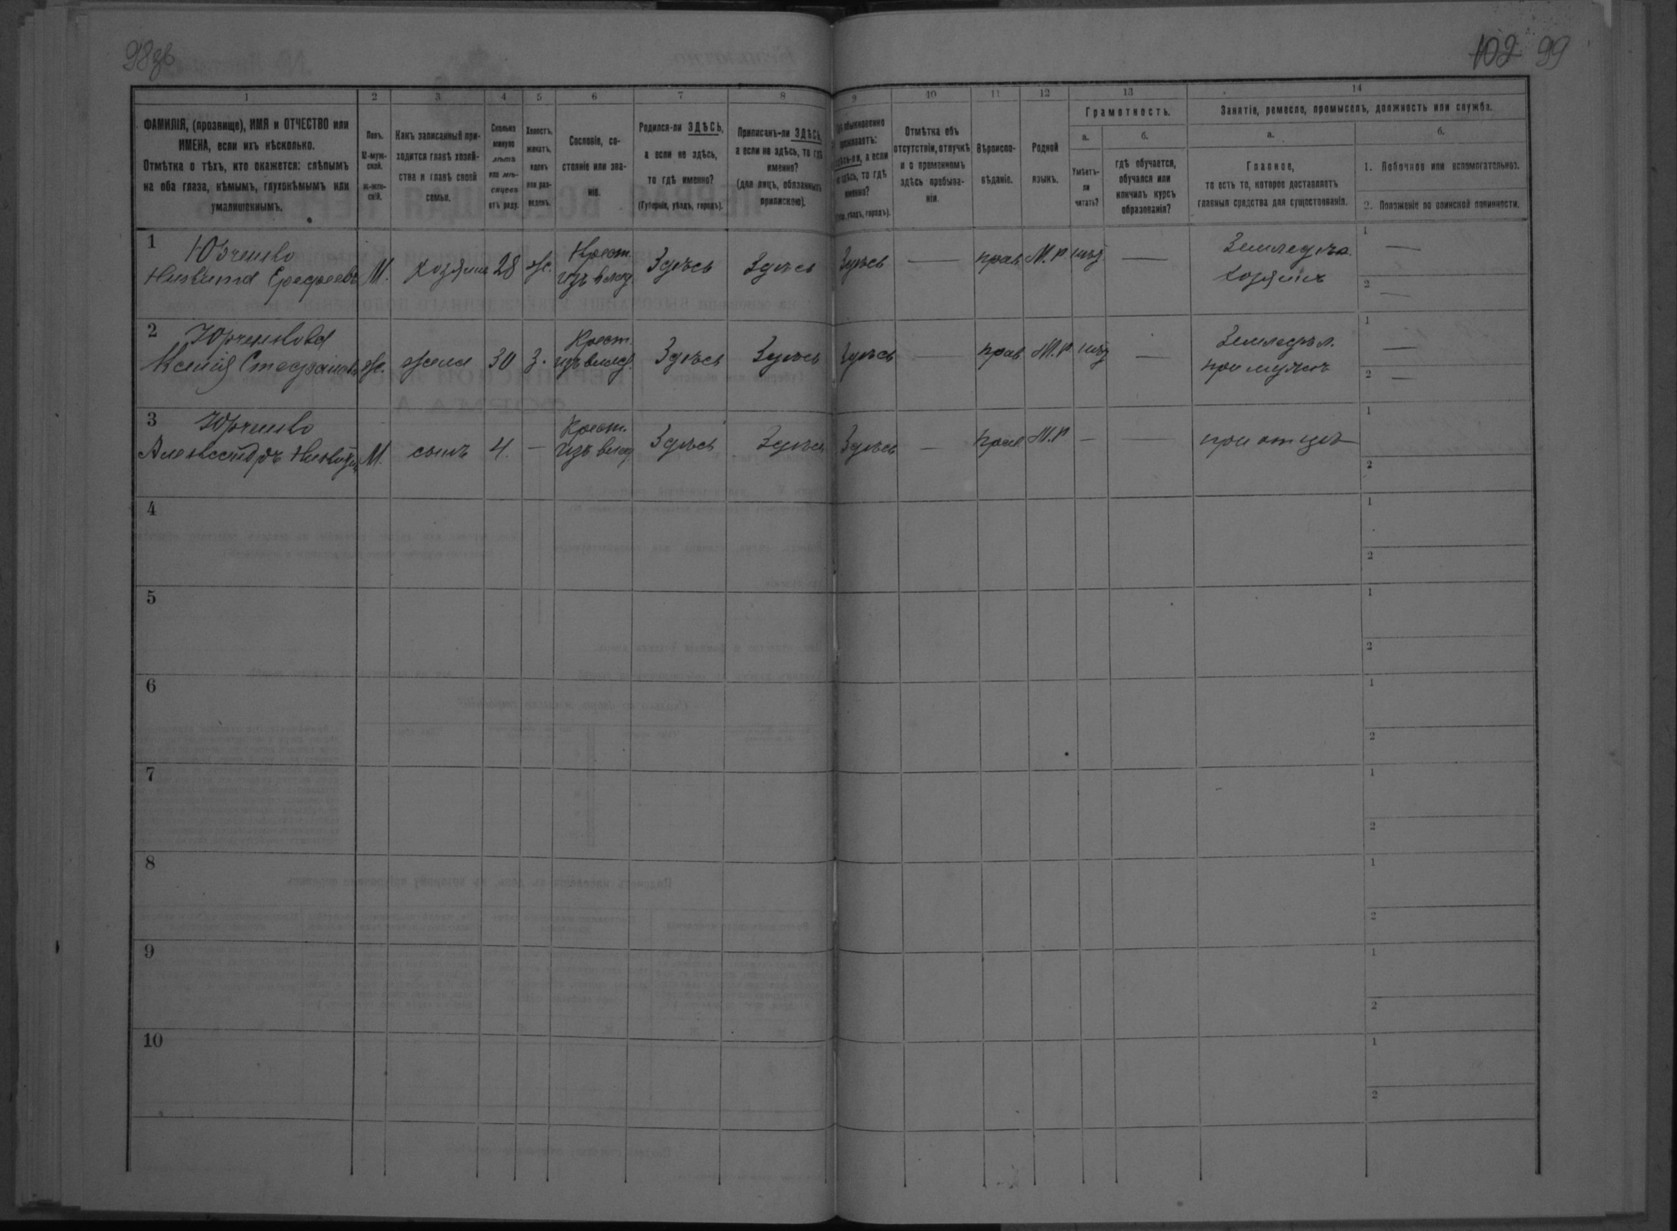 98об
102 99
1 2 3 4 5 6 7 8 9 10 11 12 13 14
ФАМИЛІЯ, (прозвище), ИМЯ и ОТЧЕСТВО или
ИМЕНА, если ихъ нѣсколько.
Отмѣтка о тѣхъ, кто окажется: слѣпымъ
на оба глаза, нѣмымъ, глухонѣмымъ или
умалишеннымъ.
Полъ.
М-муж-
ской.
Ж-жен-
скій.
Какъ записанный при-
ходится главѣ хозяй-
ства и главѣ своей
семьи.
Сколько
минуло
лѣтъ
или мѣся-
цевъ
отъ роду.
Холостъ,
женатъ,
вдовъ
или раз-
веденъ.
Сословіе, со-
стояніе или зва-
ніе.
Родился-ли ЗДѢСЬ,
а если не здѣсь,
то гдѣ именно?
(Губернія, уѣздъ, городъ).
Приписанъ-ли ЗДѢСЬ,
а если не здѣсь, то гдѣ
именно?
(для лицъ, обязанныхъ
припискою).
обыкновенно
проживаетъ:
здѣсь-ли, а если
не здѣсь, то гдѣ
именно?
(Губ., уѣздъ, городъ).
Отмѣтка объ
отсутствіи, отлучкѣ
и о временномъ
здѣсь пребыва-
ніи.
Вѣроиспо-
вѣданіе.
Родной
языкъ.
Грамотность.
а.
Умѣетъ-
ли
читать?
б.
гдѣ обучается,
обучался или
кончилъ курсъ
образованія?
Занятіе, ремесло, промыселъ, должность или служба.
а.
Главное,
то есть то, которое доставляетъ
главныя средства для существованія.
б.
1. Побочное или вспомогательное.
2. Положеніе по воинской повинности.
1 Юрченко
Никита Ерофеевъ М. хозяинъ 28 ж. Крест. изъ влад. Здѣсь Здѣсь Здѣсь — прав М.Р нѣт — Земледѣл. хозяинъ 1 — 2 —
2 Юрченкова
Ксенія Стефанова ж. жена 30 з. Крест. изъ влад. Здѣсь Здѣсь Здѣсь — прав М.Р нѣт — Земледѣл. при мужѣ 1 — 2 —
3 Юрченко
Александръ Никитинъ М. сынъ 4. — Крест. изъ влад Здѣсь Здѣсь Здѣсь — прав М.Р — — при отцѣ 1 2
4 1
2
5 1
2
6 1
2
7 1
2
8 1
2
9 1
2
10 1
2